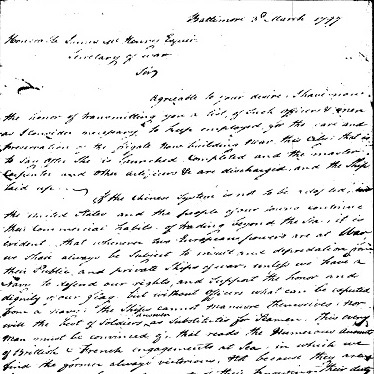 Baltimore 3d March 1797
Honorable James McHenry Esquire
Secretary of War
Sir
Agreeable to your desire I have now
the honor of transmitting you a list of such officers & men
as I consider necessary to keep employed for the care and
preservation of the frigate now building near this City that is
to say after She is launched completed and the master
Carpenter and other artificers &c are discharged and the Ship
laid up.
If the Chinese System is not to be adopted, and
the United States and the people of our towns continue
their Commercial habits of trading beyond the Sea, it is
evident that whenever two European powers are at War
we shall always be Subject to insult and depredation from
their Public and private Ships of war, unless we have a
Navy to defend our rights and Support the honor and
dignity of our flag but without officers what can be expected
from a navy. the Ships cannot manouvre themselves. nor
will the best of Soldiers answer as Substitutes for Seamen. This every
man must be convinced of, that reads the Numerous Accounts
of British & French engagements at Sea, in which we
find the former always victorious, Not because they are